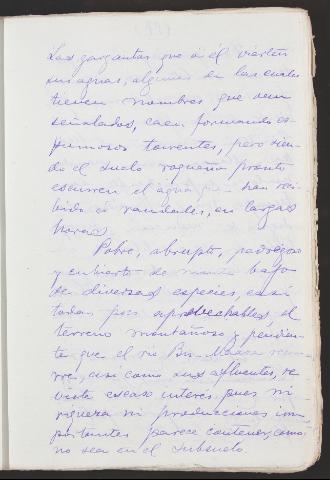 Las gargantas que á él vierten
sus aguas, algunas de las cuales
tienen nombres que van
señalados, caen formando es-
pumosos torrentes, pero sien-
do el suelo roqueño pronto
escurren el agua que han reci-
bido á raudales, en largas
horas.
Pobre, abrupto, pedregoso
y cubierto de monte bajo
de diversas especies, casi
todas poco aprovechables, el
terreno montañoso y pendien-
te que el rio Bu-Maaza recorre
rre, asi como sus afluentes, re-
viste escaso interes pues ni
riqueza ni producciones im-
portantes parece contener, como
no sea en el subsuelo.